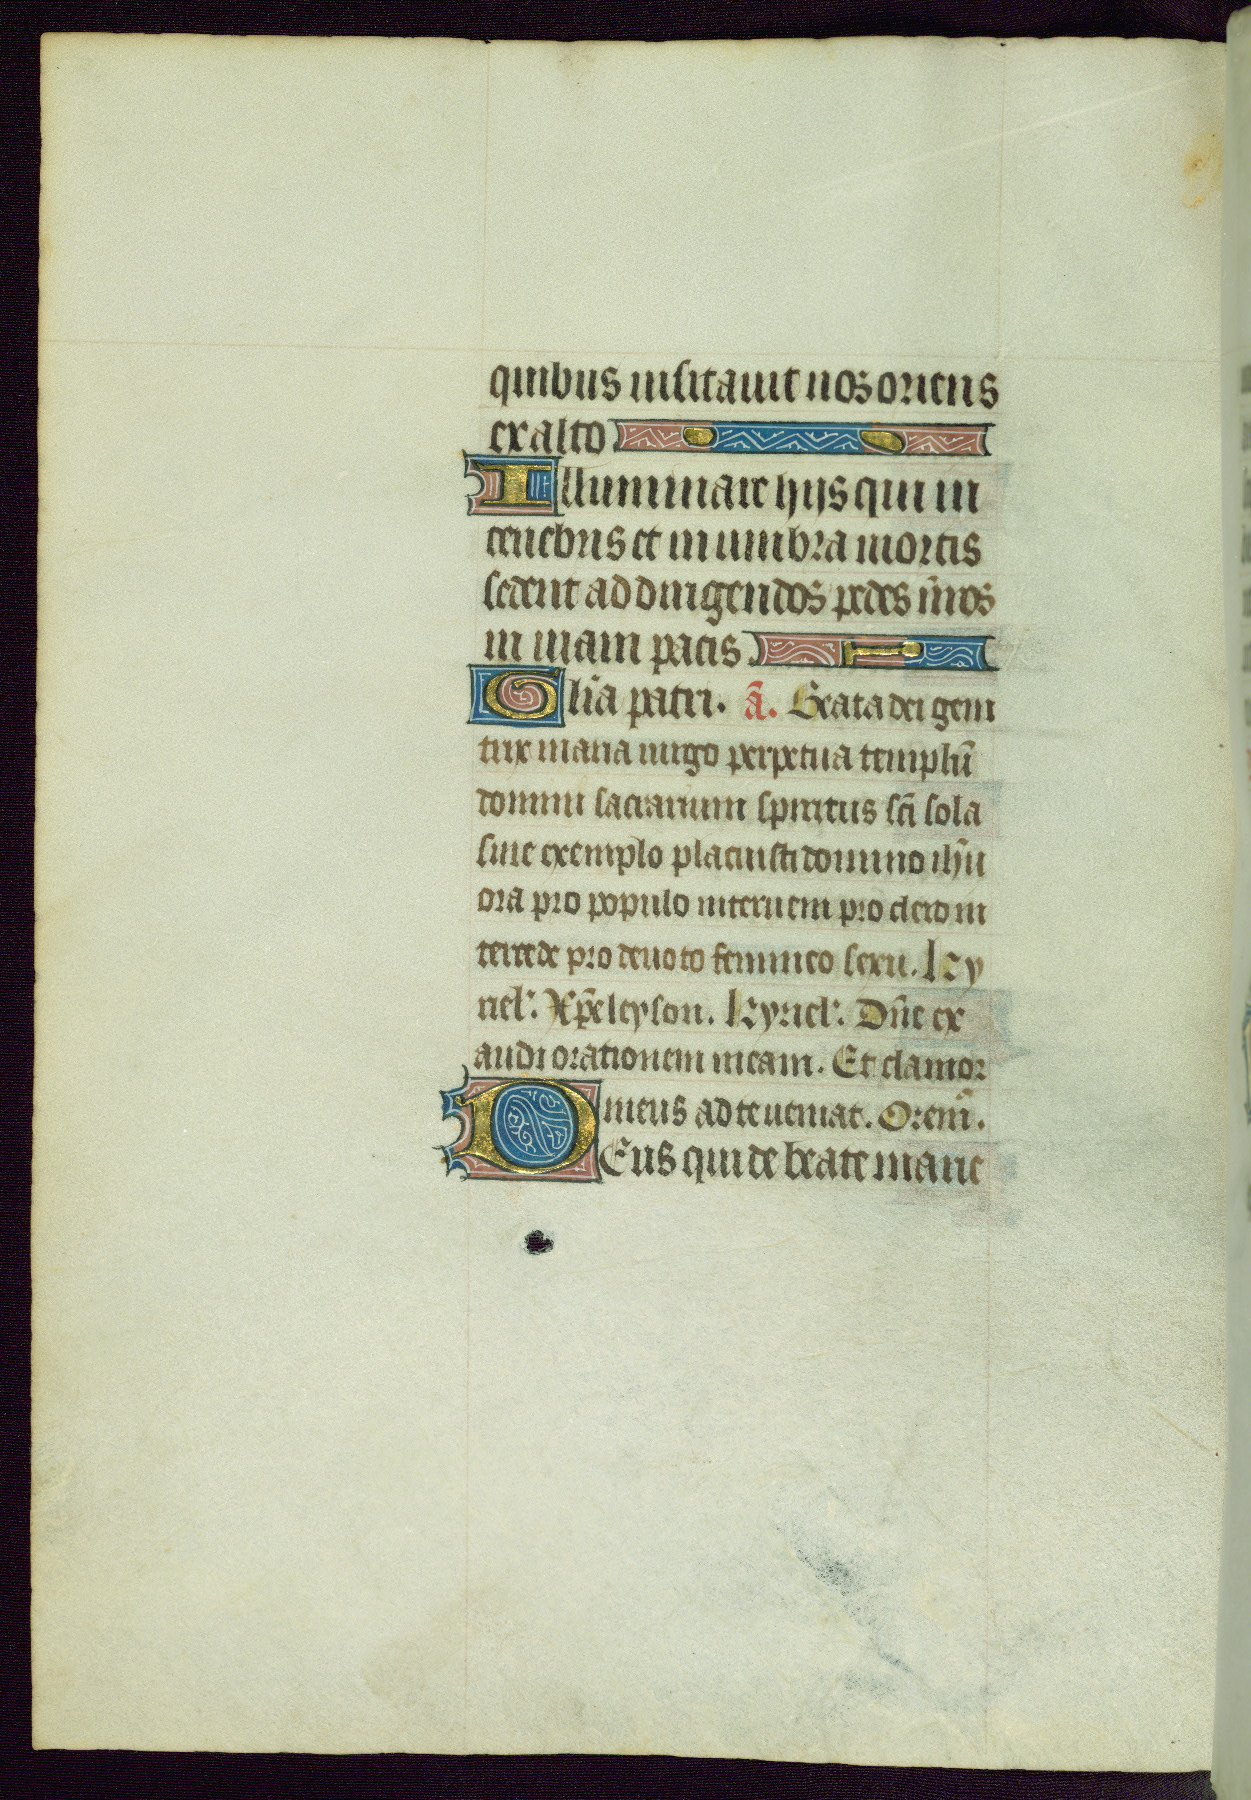 quibus uisitauit nos oriens
ex alto
Illuminare hijs qui in
tenebris et in umbra mortis
sedent ad dirigendos pedes nr̄os
in uiam pacis
Glīa patri. ā. Beata dei geni
trix maria uirgo perpetua templū
domini sacrarium spiritus scī sola
sine exemplo placuisti domino ihū
ora pro populo interueni pro clero in
tercede pro deuoto femineo sexu. Ky
riel'. Xp̄eleyson. Kyriel'. Dn̄e ex
audi orationem meam. Et clamor
meus ad te ueniat. Orem̄.
DEus qui de beate marie